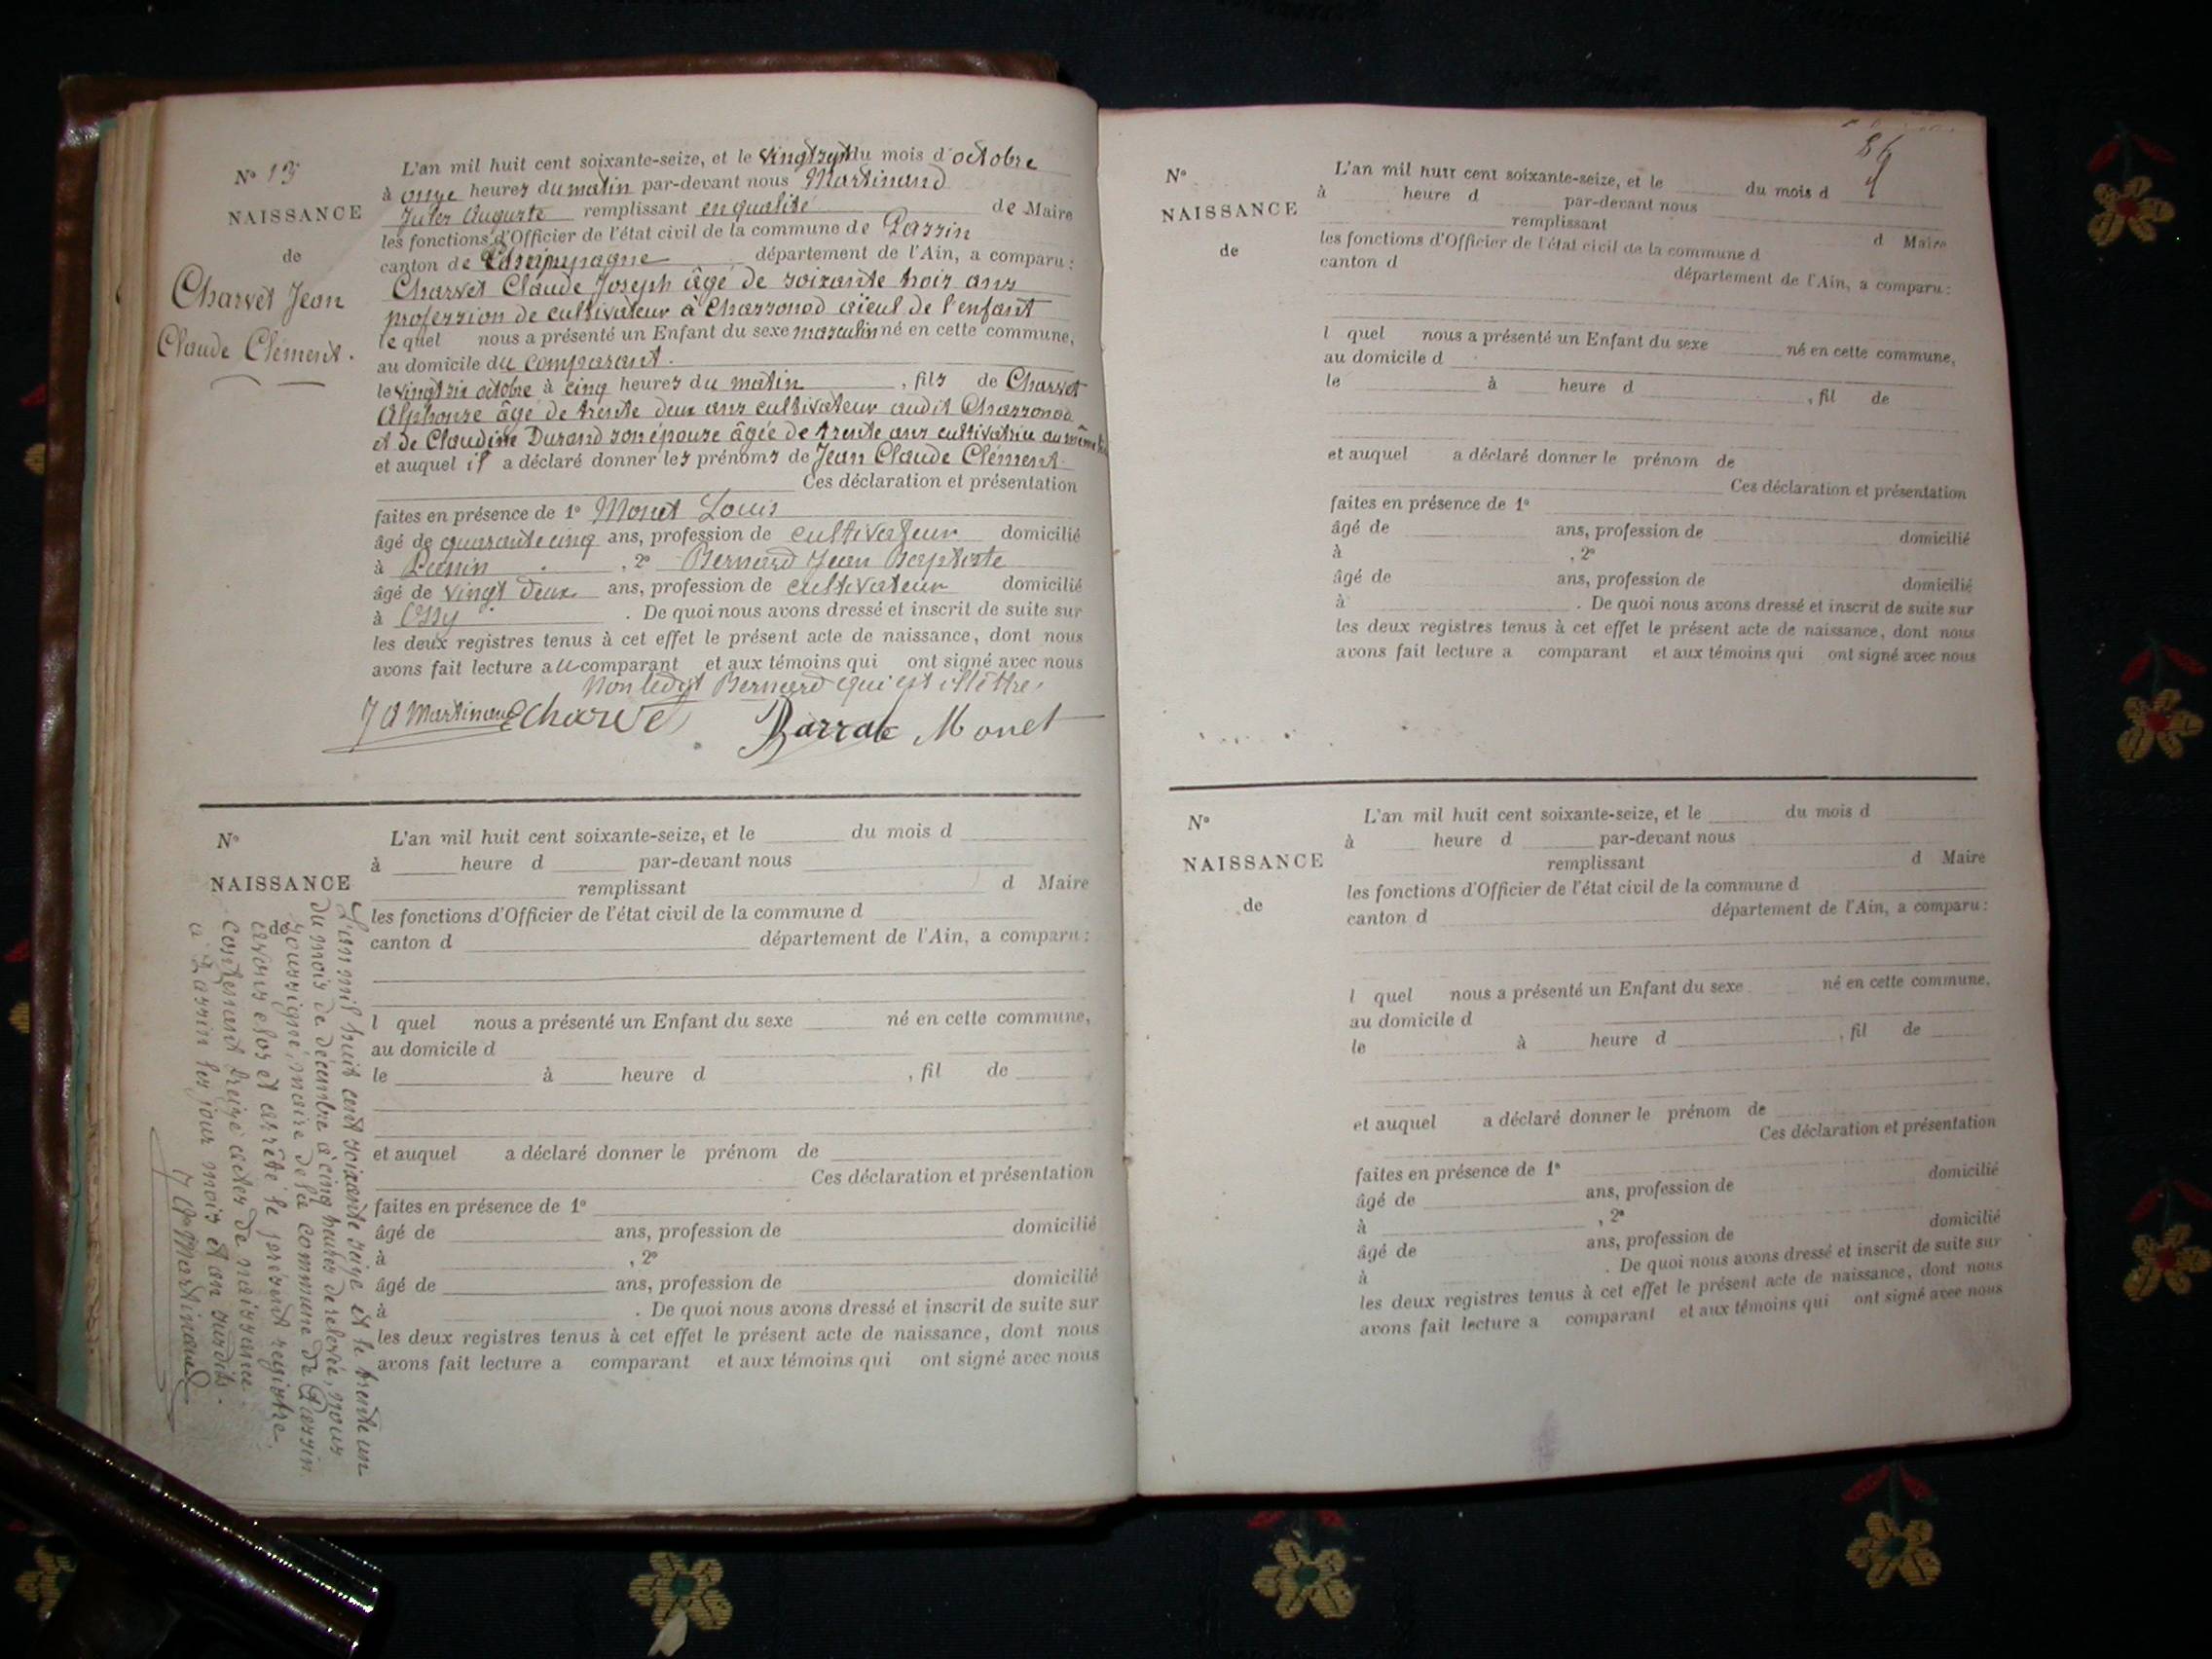 N° 13
NAISSANCE
de
Charvet Jean
Claude Clément.
L'an mil huit cent soixante-seize, et le vingt sept du mois d'octobre
à onze heures du matin par-devant nous Martinand
Jules Auguste remplissant en qualité de Maire
les fonctions d'Officier de l'état civil de la commune de Passin
canton de Champagne département de l'Ain, a comparu :
Charvet Claude Joseph âgé de soixante trois ans
profession de cultivateur à Chassonod aieul de l'enfant
lequel nous a présenté un Enfant du sexe masculin né en cette commune,
au domicile du comparant.
le vingt six octobre à cinq heures du matin , fils de Charvet
Alphonse âgé de trente deux ans cultivateur audit Chassonod
et de Claudine Durand son épouse âgée de trente ans cultivatrice au même
et auquel il a déclaré donner les prénoms de Jean Claude Clément
Ces déclaration et présentation
faites en présence de 1° Monet Louis
âgé de quarante cinq ans, profession de cultivateur domicilié
à Passin , 2° Bernard Jean Baptiste
âgé de vingt deux ans, profession de cultivateur domicilié
à Ossy . De quoi nous avons dressé et inscrit de suite sur
les deux registres tenus à cet effet le présent acte de naissance, dont nous
avons fait lecture au comparant et aux témoins qui ont signé avec nous
non ledit Bernard qui est illettré.
J A Martinand Charvet Barrat Monet
N°
NAISSANCE
de
L'an mil huit cent soixante-seize, et le du mois d
à heure d par-devant nous
remplissant d Maire
les fonctions d'Officier de l'état civil de la commune d
canton d département de l'Ain, a comparu :
l quel nous a présenté un Enfant du sexe né en cette commune,
au domicile d
le à heure d , fil de
et auquel a déclaré donner le prénom de
Ces déclaration et présentation
faites en présence de 1°
âgé de ans, profession de domicilié
à , 2°
âgé de ans, profession de domicilié
à . De quoi nous avons dressé et inscrit de suite sur
les deux registres tenus à cet effet le présent acte de naissance, dont nous
avons fait lecture a comparant et aux témoins qui ont signé avec nous
L'an mil huit cent soixante seize et le trente un
du mois de décembre à cinq heures de relevée, nous
soussigné, maire de la commune de Passin
avons clos et arrêté le présent registre,
contenant treize actes de naissance.
à Passin les jour mois et an susdits.
J A Martinand
N°
NAISSANCE
de
L'an mil huit cent soixante-seize, et le du mois d
à heure d par-devant nous
remplissant d Maire
les fonctions d'Officier de l'état civil de la commune d
canton d département de l'Ain, a comparu :
l quel nous a présenté un Enfant du sexe né en cette commune,
au domicile d
le à heure d , fil de
et auquel a déclaré donner le prénom de
Ces déclaration et présentation
faites en présence de 1°
âgé de ans, profession de domicilié
à , 2°
âgé de ans, profession de domicilié
à . De quoi nous avons dressé et inscrit de suite sur
les deux registres tenus à cet effet le présent acte de naissance, dont nous
avons fait lecture a comparant et aux témoins qui ont signé avec nous
N°
NAISSANCE
de
L'an mil huit cent soixante-seize, et le du mois d
à heure d par-devant nous
remplissant d Maire
les fonctions d'Officier de l'état civil de la commune d
canton d département de l'Ain, a comparu :
l quel nous a présenté un Enfant du sexe né en cette commune,
au domicile d
le à heure d , fil de
et auquel a déclaré donner le prénom de
Ces déclaration et présentation
faites en présence de 1°
âgé de ans, profession de domicilié
à , 2°
âgé de ans, profession de domicilié
à . De quoi nous avons dressé et inscrit de suite sur
les deux registres tenus à cet effet le présent acte de naissance, dont nous
avons fait lecture a comparant et aux témoins qui ont signé avec nous